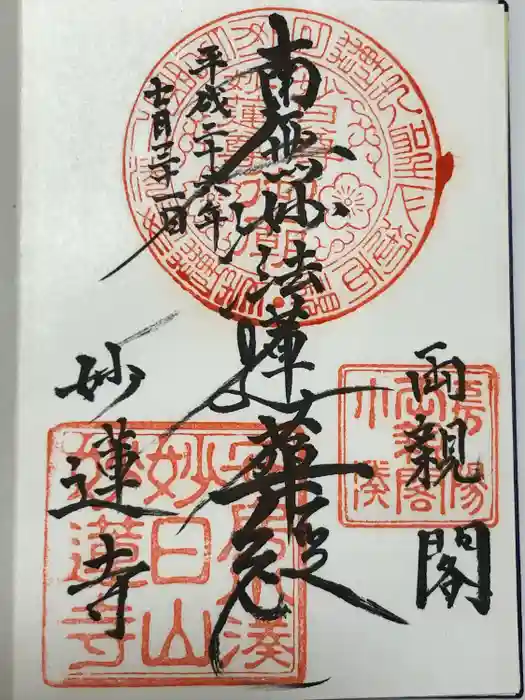 両親閣
南無妙法蓮華経
平成二十六年
十一月二十一日
妙蓮寺
房陽
両親閣
小湊
安房小湊
妙日山
妙蓮寺